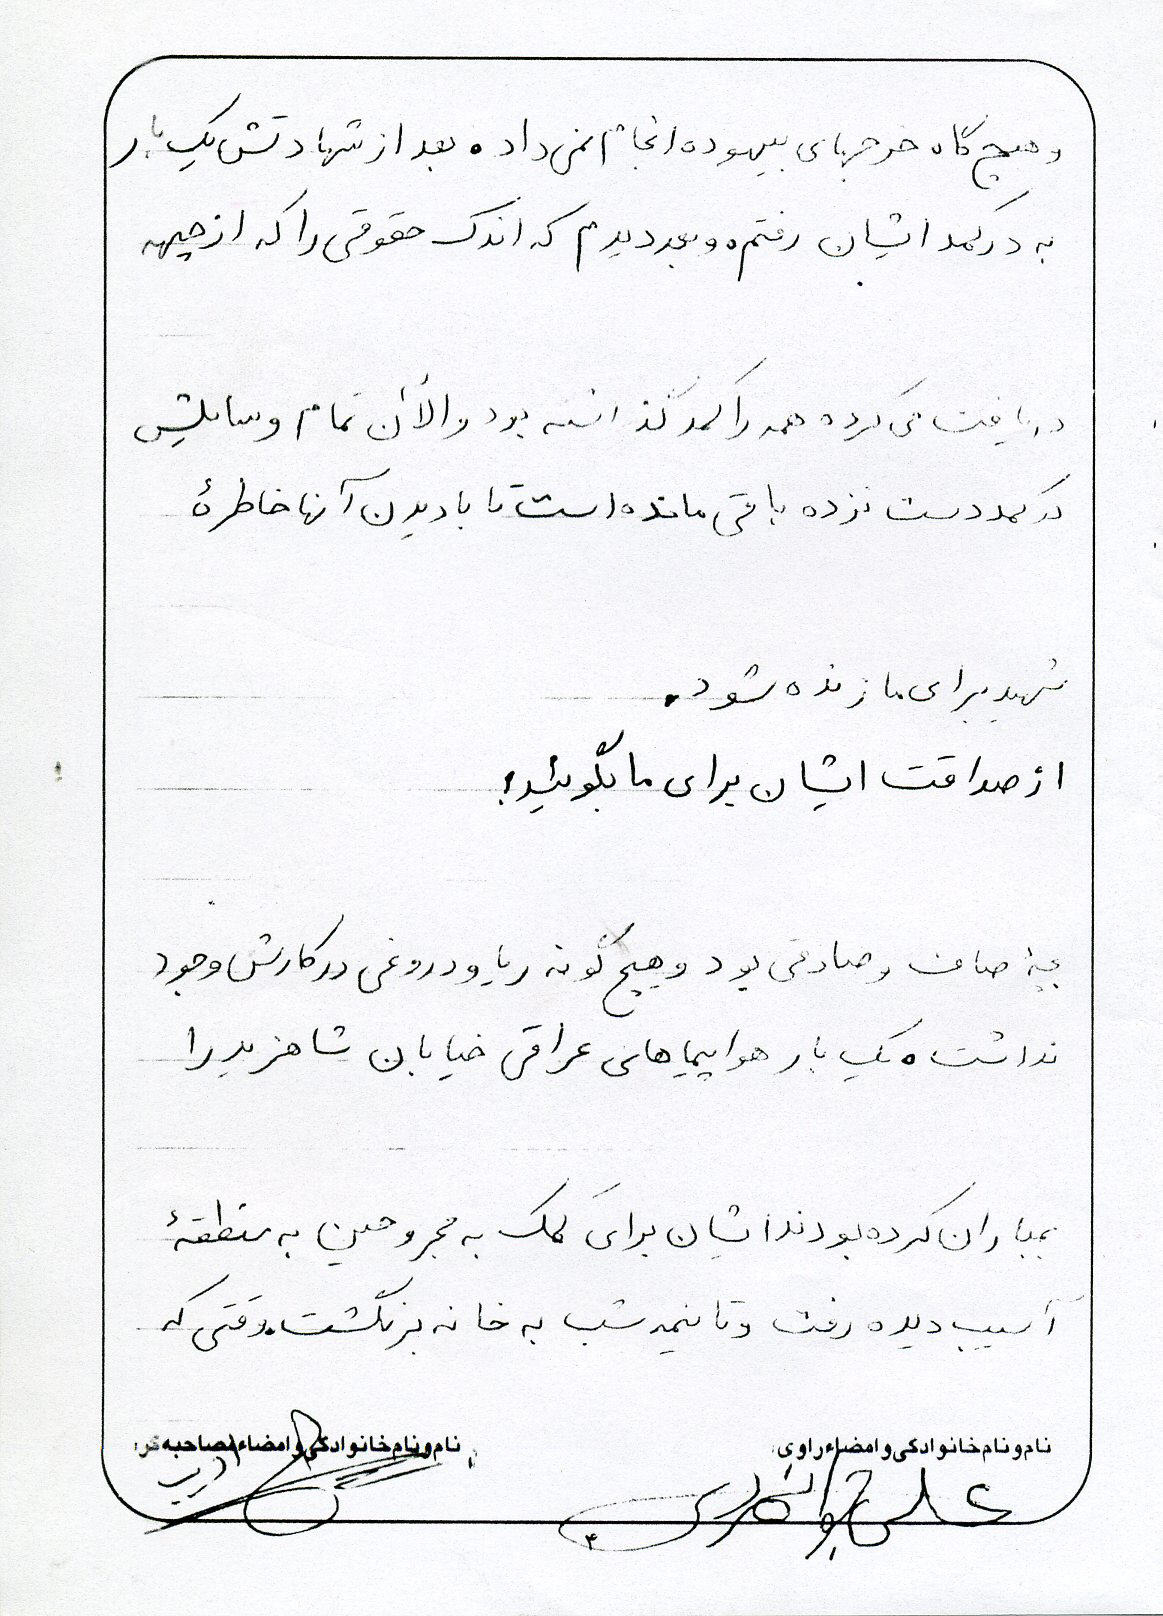 و هیچ گاه خرجهای بیهوده انجام نمی داد. بعد از شهادتش یک بار
به در کمد ایشان رفتم. و بعد دیدم که اندک حقوقی را که از جبهه
دریافت می کرده همه را کمد گذاشته بود و الآن تمام وسایلش
در کمد دست نزده باقی مانده است تا با دیدن آنها خاطرهٔ
شهید برای ما زنده شود.
از صداقت ایشان برای ما بگوئید؟
بچهٔ صاف و صادقی بود و هیچ گونه ریا و دروغی در کارش وجود
نداشت. یک بار هواپیماهای عراقی خیابان شاهزید را
بمباران کرده بودند ایشان برای کمک به مجروحین به منطقهٔ
آسیب دیده رفت و تا نیمه شب به خانه برنگشت. وقتی که
نام و نام خانوادگی و امضاء راوی:
نام و نام خانوادگی و امضاء مصاحبه گر:
علی
۴